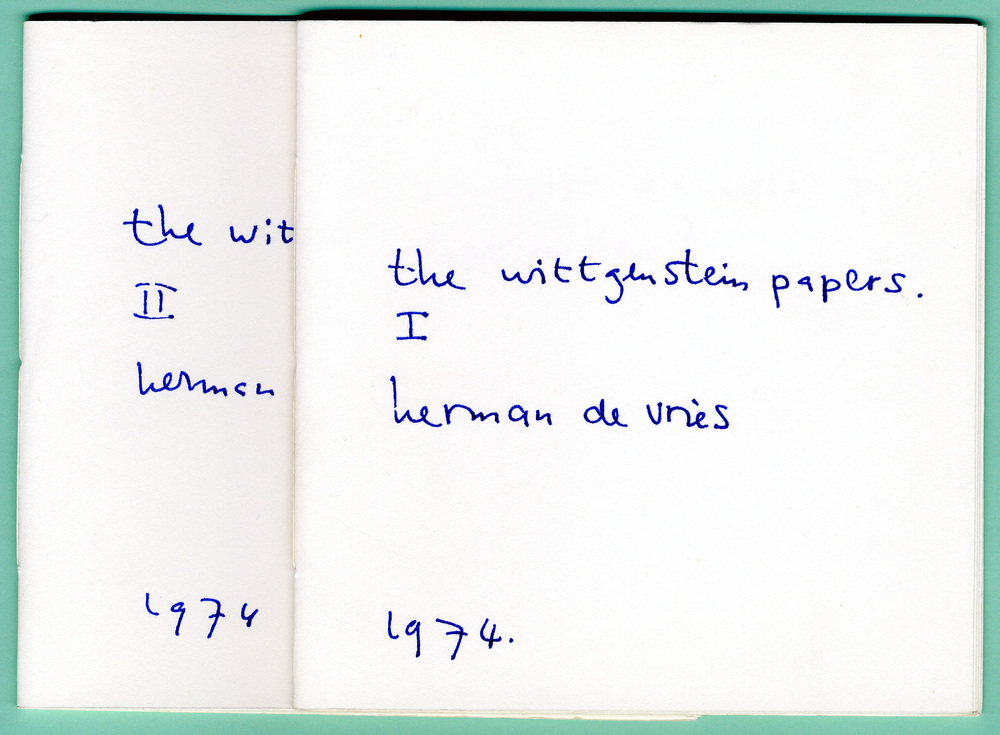 the wit
II
herman
1974
the wittgenstein papers.
I
herman de vries
1974.